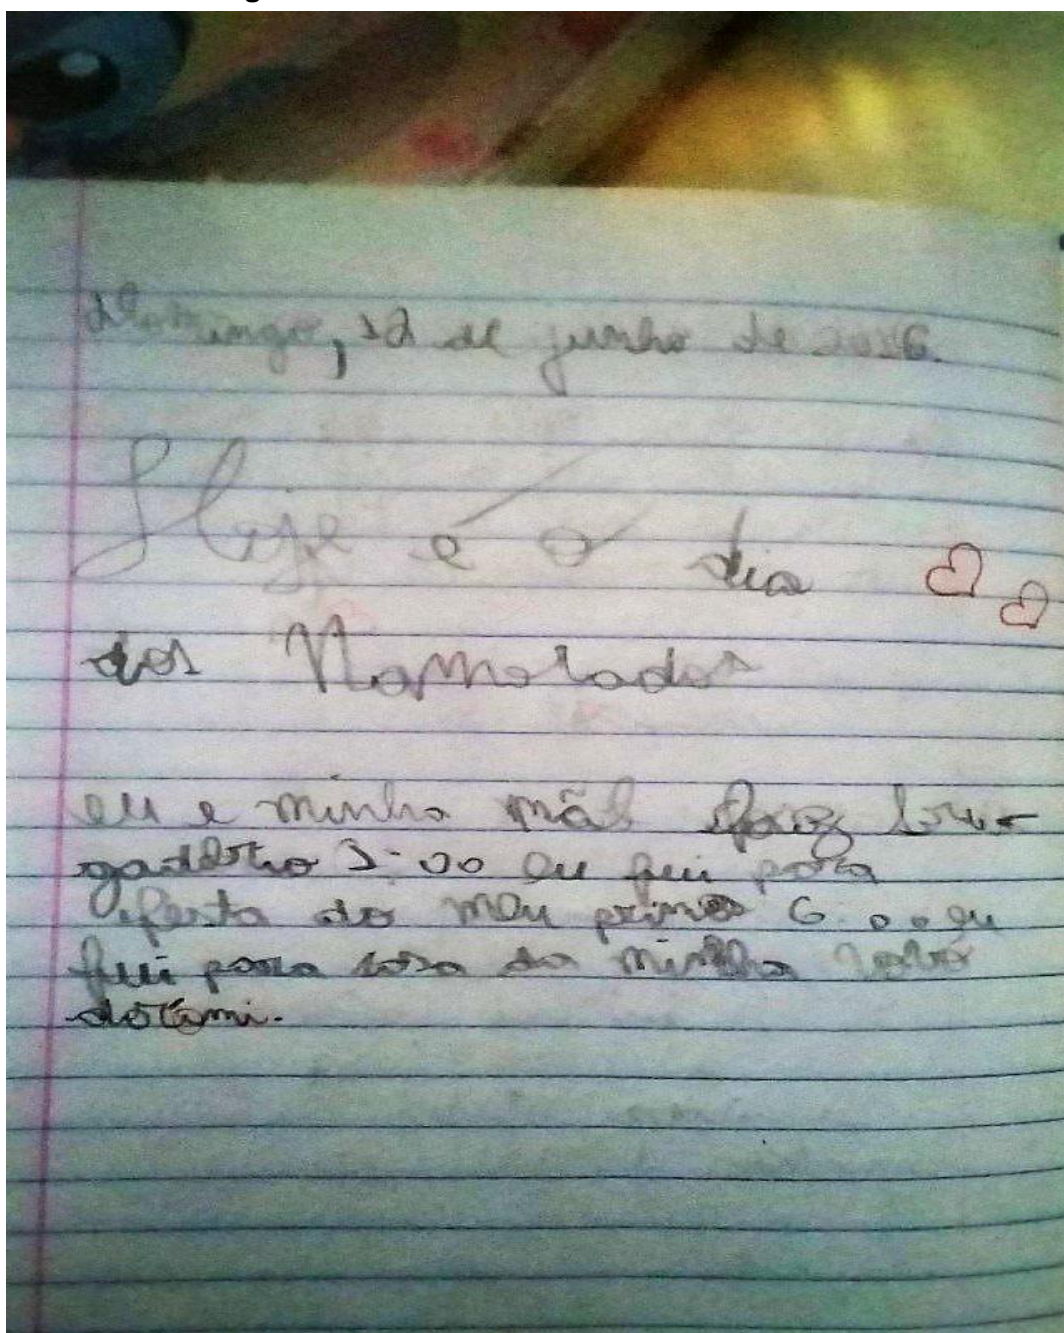 Domingo, 12 de junho de 2016.
Hoje é o dia
dos Namorados
eu e minha mãe faz briga
gadeiro 3:00 eu fui para
festa do meu primo 6:00 eu
fui para casa da minha vovó